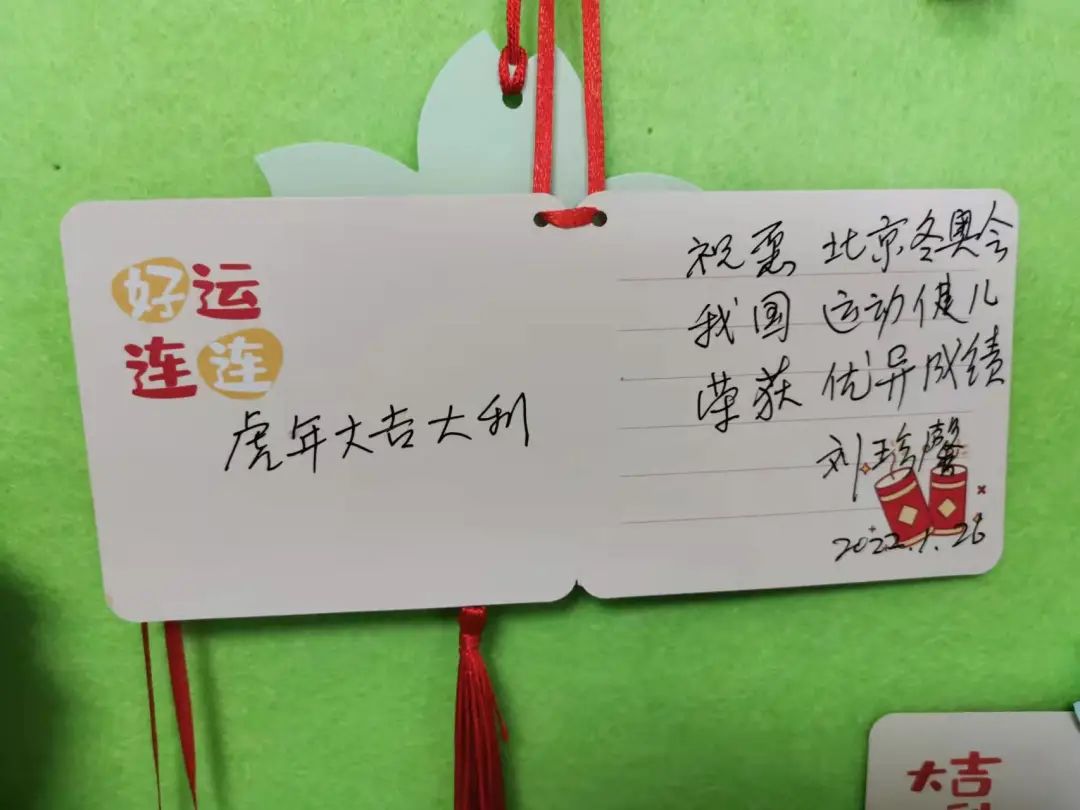 好运
连连
虎年大吉大利
祝愿 北京冬奥会
我国 运动健儿
荣获 优异成绩
刘珍馨
2022.1.26
大吉